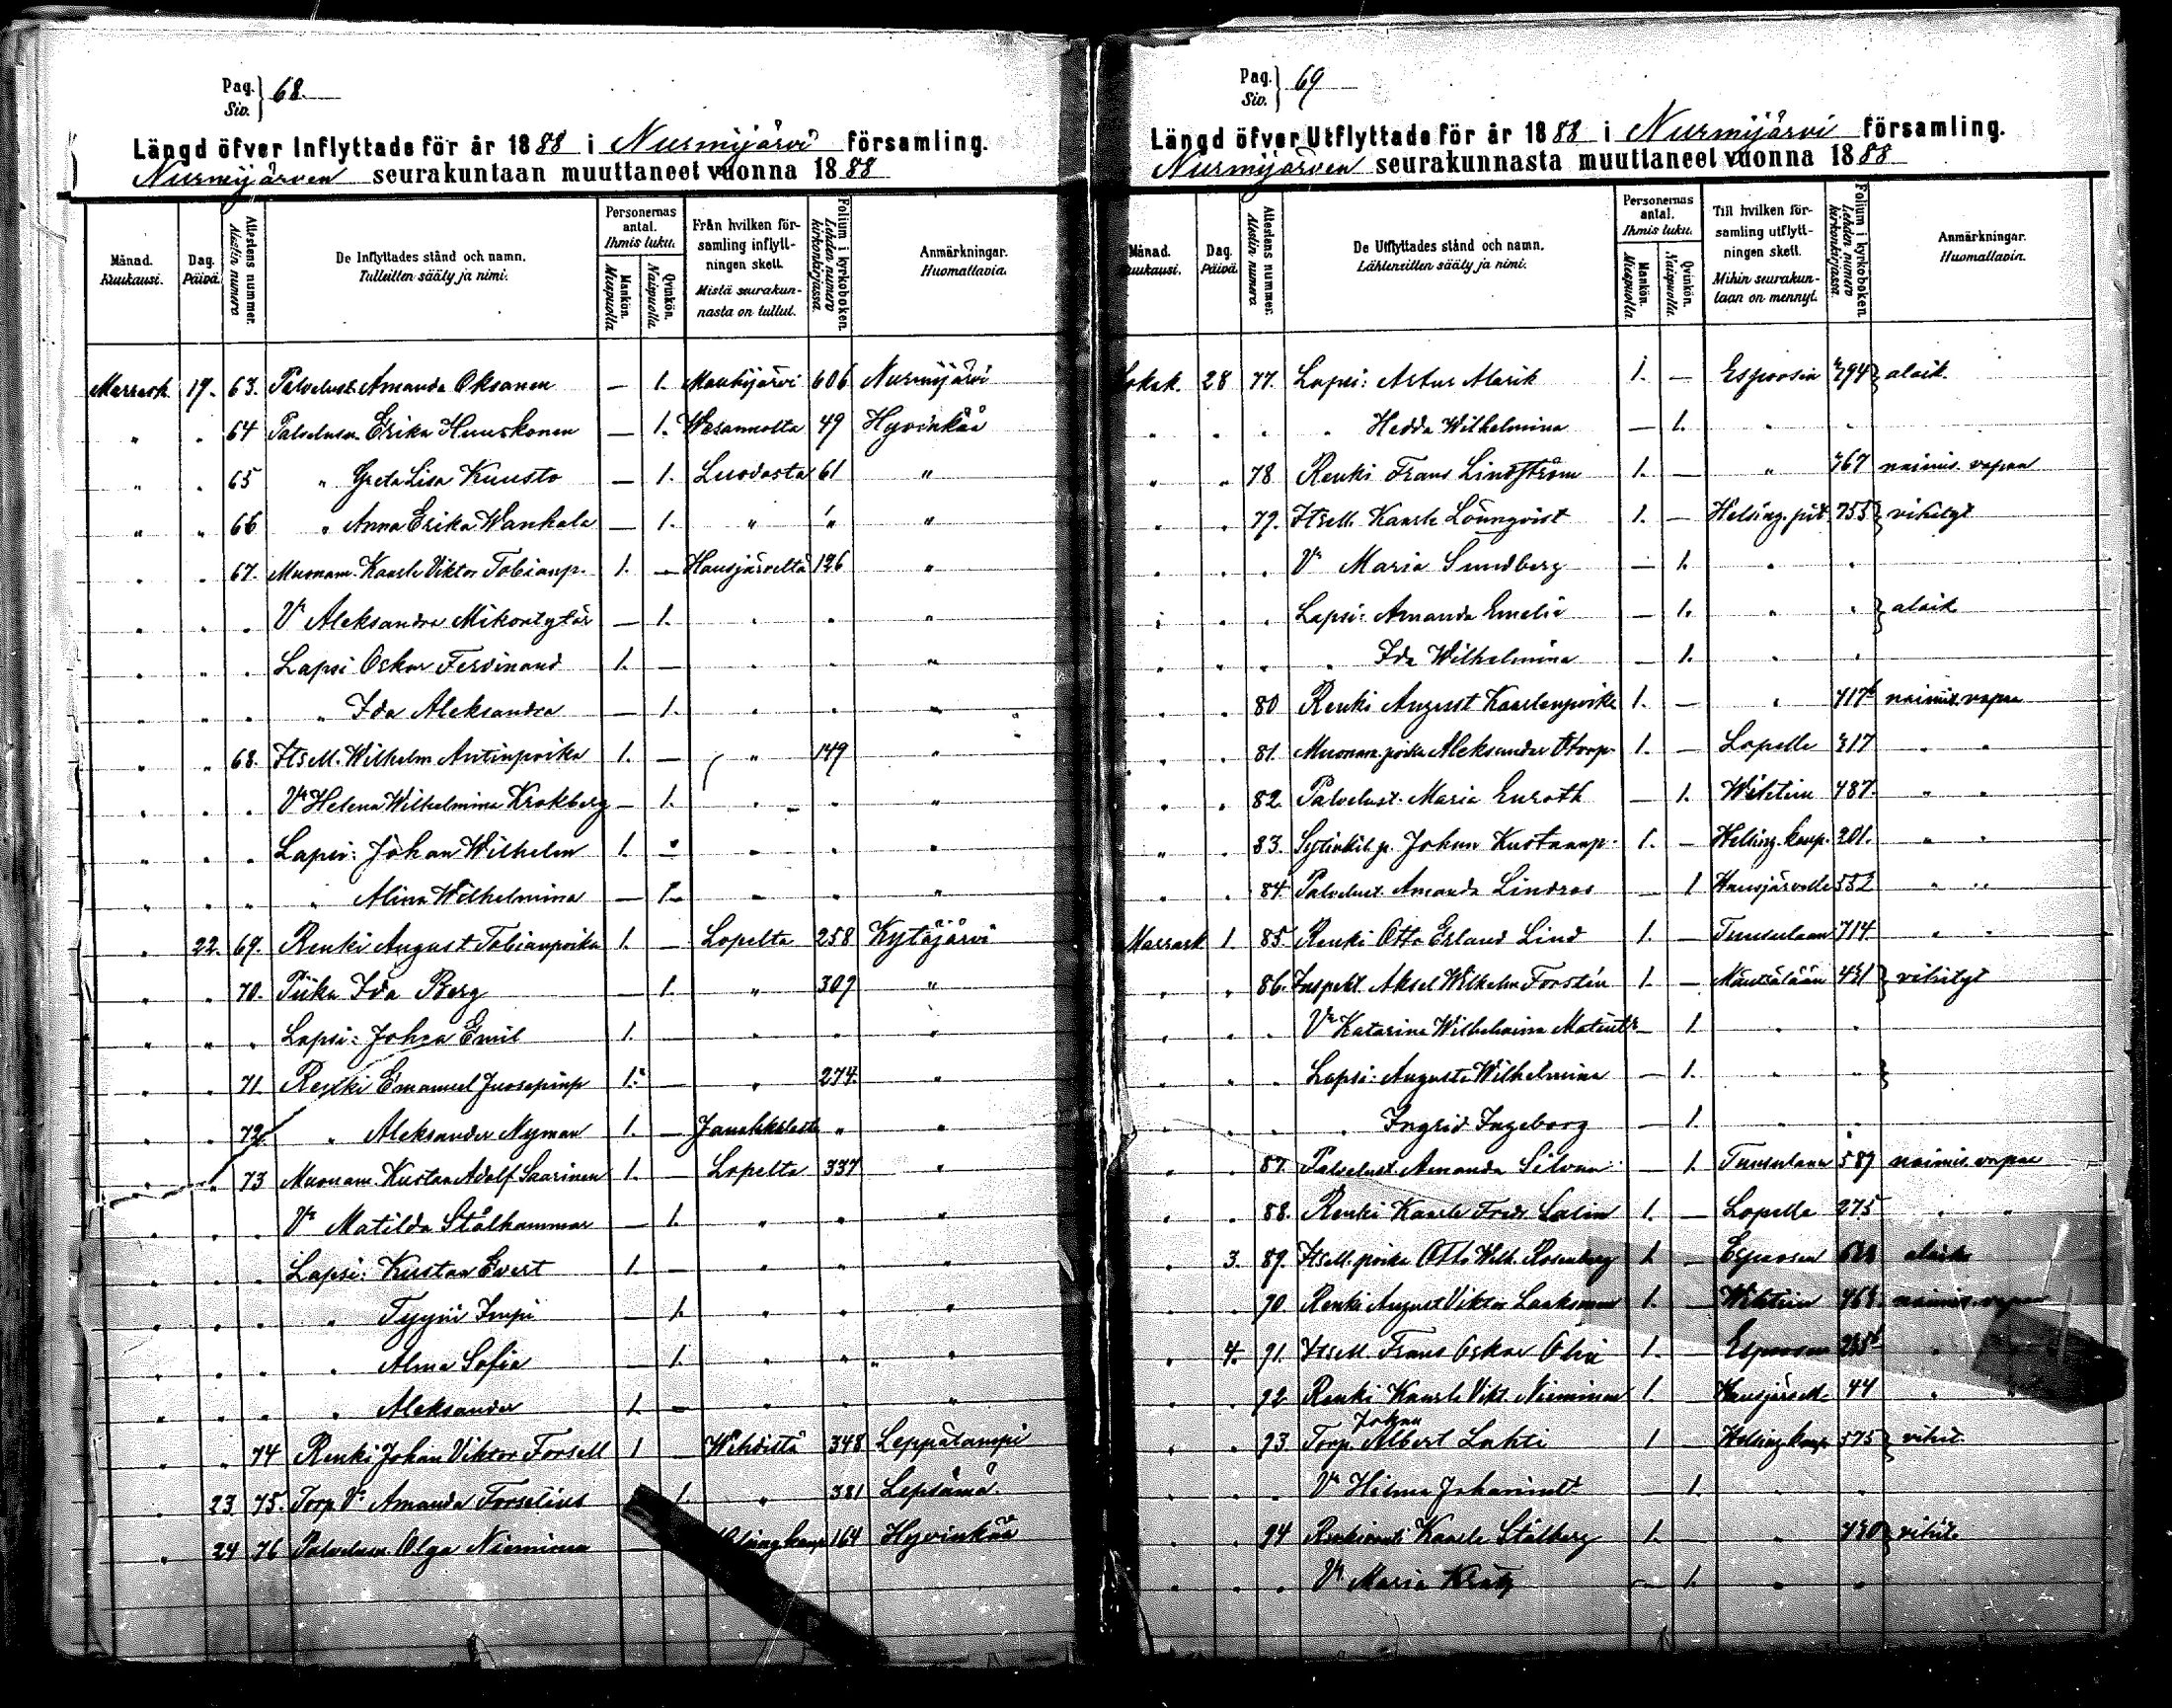 Pag. Siv. } 68.
Längd öfver Inflyttade för år 1888 i Nurmijärvi församling.
Nurmijärven seurakuntaan muuttaneet vuonna 1888
Månad. Kuukausi.
Dag. Päivä.
Attestens nummer. Alestin numero
De Inflyttades stånd och namn. Tulleitten sääty ja nimi.
Personernas antal. Ihmis luku.
Mankön. Miespuolia
Qvinkön. Naispuolia
Från hvilken församling inflyttningen skett. Mistä seurakunnasta on tullut.
Folium i kyrkoboken. Lehden numero kirkonkirjassa.
Anmärkningar. Huomattavia.
Marrask 19. 63. Palvelust. Amanda Oksanen — 1. Mouhijärvi 606 Nurmijärvi
" " 64 Palvelusn. Erika Huuskonen — 1. Wesannolta 49 Hyvinkää
" " 65 " Greta Lisa Kuusto — 1. 61 "
" " 66 " Anna Erika Wankala — 1. " " "
" " 67. Muonam. Kaarle Viktor Tobianp. 1. — Hausjärveltä 126 "
" " " Vo Aleksandra Mikontytär — 1. " " "
" " " Lapsi Oskar Ferdinand 1. — " " "
" " " " Ida Aleksandra — 1. " " "
" " 68. Itsell. Wilhelm Antinpoika 1. — " 149 "
" " " Vo Helena Wilhelmina Krokberg — 1. " " "
" " " Lapsi: Johan Wilhelm 1. — " " "
" " " " Alina Wilhelmina — 1. " " "
" 22. 69. Renki August Tobianpoika 1. — Lopelta 258 Kytäjärvi
" " 70. Piika Ida Berg — 1. " 309 "
" " " Lapsi: Johan Emil 1. " " "
" " 71. Renki Emanuel Juosepinp 1. — " 274. "
" " 72 " Aleksander Nyman 1. — Janakkalasta " "
" " 73 Muonam. Kustaa Adolf Saarinen 1. — Lopelta 337 "
" " " Vo Matilda Stålhammar — 1. " " "
" " " Lapsi: Kustaa Evert 1. — " " "
" " " " Tyyni Impi — 1. " " "
" " " " Alma Sofia — 1. " " "
" " " " Aleksander 1. — " " "
" " 74 Renki Johan Viktor Forsell 1 — Wihdistä 348 Leppälampi
" 23 75. Torp. Vo Amanda Forselius 1. " 381 Lepsämä.
" 24 76 Palvelusn. Olga Nieminen — 164 Hyvinkää
Pag. Siv. } 69
Längd öfver Utflyttade för år 1888 i Nurmijärvi församling.
Nurmijärven seurakunnasta muuttaneet vuonna 1888
Månad. Kuukausi.
Dag. Päivä.
Attestens nummer. Alestin numero
De Utflyttades stånd och namn. Lähteneitten sääty ja nimi.
Personernas antal. Ihmis luku.
Mankön. Miespuolia.
Qvinkön. Naispuolia.
Till hvilken församling utflyttningen skett. Mihin seurakuntaan on mennyt.
Folium i kyrkoboken. Lehden numero kirkonkirjassa.
Anmärkningar. Huomattavia.
Lokak. 28 77. Lapsi: Artur Alarik 1. — Espoosen 794 } alaik.
" " " " Hedda Wilhelmina — 1. " "
" " 78 Renki Frans Lindström 1. — " 767 naimis. vapaa
" " 79. Itsell. Kaarle Lönnqvist 1. — Helsing. pit 755 } vihityt
" " " Vo Maria Sundberg — 1. " "
" " " Lapsi: Amanda Emelia — 1. " " } alaik
" " " " Ida Wilhelmina — 1. " "
" " 80 Renki August Kaarlenpoika 1. — " 717b naimis. vapaa
" " 81. Muonam. poika Aleksander 1. — Lopelle 317 " "
" " 82. Palvelust. Maria Enroth — 1. Wihtiin 487. " "
" " 83. Johan Kustaanp. 1. — Helsing. kaup. 201. " "
" " 84 Palvelust. Amanda Lindroos — 1 Hausjärvelle 552 " "
Marrask 1. 85 Renki Otto Erland Lind 1. — Tuusulaan 714. " "
" " 86. Inspekt. Aksel Wilhelm Forstén 1. — Mäntsälään 431 } vihityt
" " " Vo Katarina Wilhelmina Matint. — 1 " "
" " " Lapsi: Augusta Wilhelmina — 1. " " }
" " " " Ingrid Ingeborg — 1. " "
" " 87. Palvelust. Amanda Silvan — 1. Tuusulaan 589 naimis. vapaa
" " 88. Renki Kaarle Fredr. Salin 1. — Lopelle 275 " "
" 3. 89. Itsell. poika Otto Wilh. Rosenberg 1. — Espoosen alaik
" " 90. Renki August Viktor Laaksonen 1. — Wihtiin naimis. vapaa
" 4. 91. Itsell. Frans Oskar 1. — Espoosen "
" " 92 Renki Kaarle Vikt. Nieminen 1. — Hausjärvell. 44 " "
" " 93 Torp. Johan Albert Lahti 1 — Helsing. kaup 575 } vihit.
" " " Vo Hilma Johanint. — 1. " "
" " 94 Kaarle Stålberg 1. — " 730 } vihit.
" " " Vo Maria — 1. " "